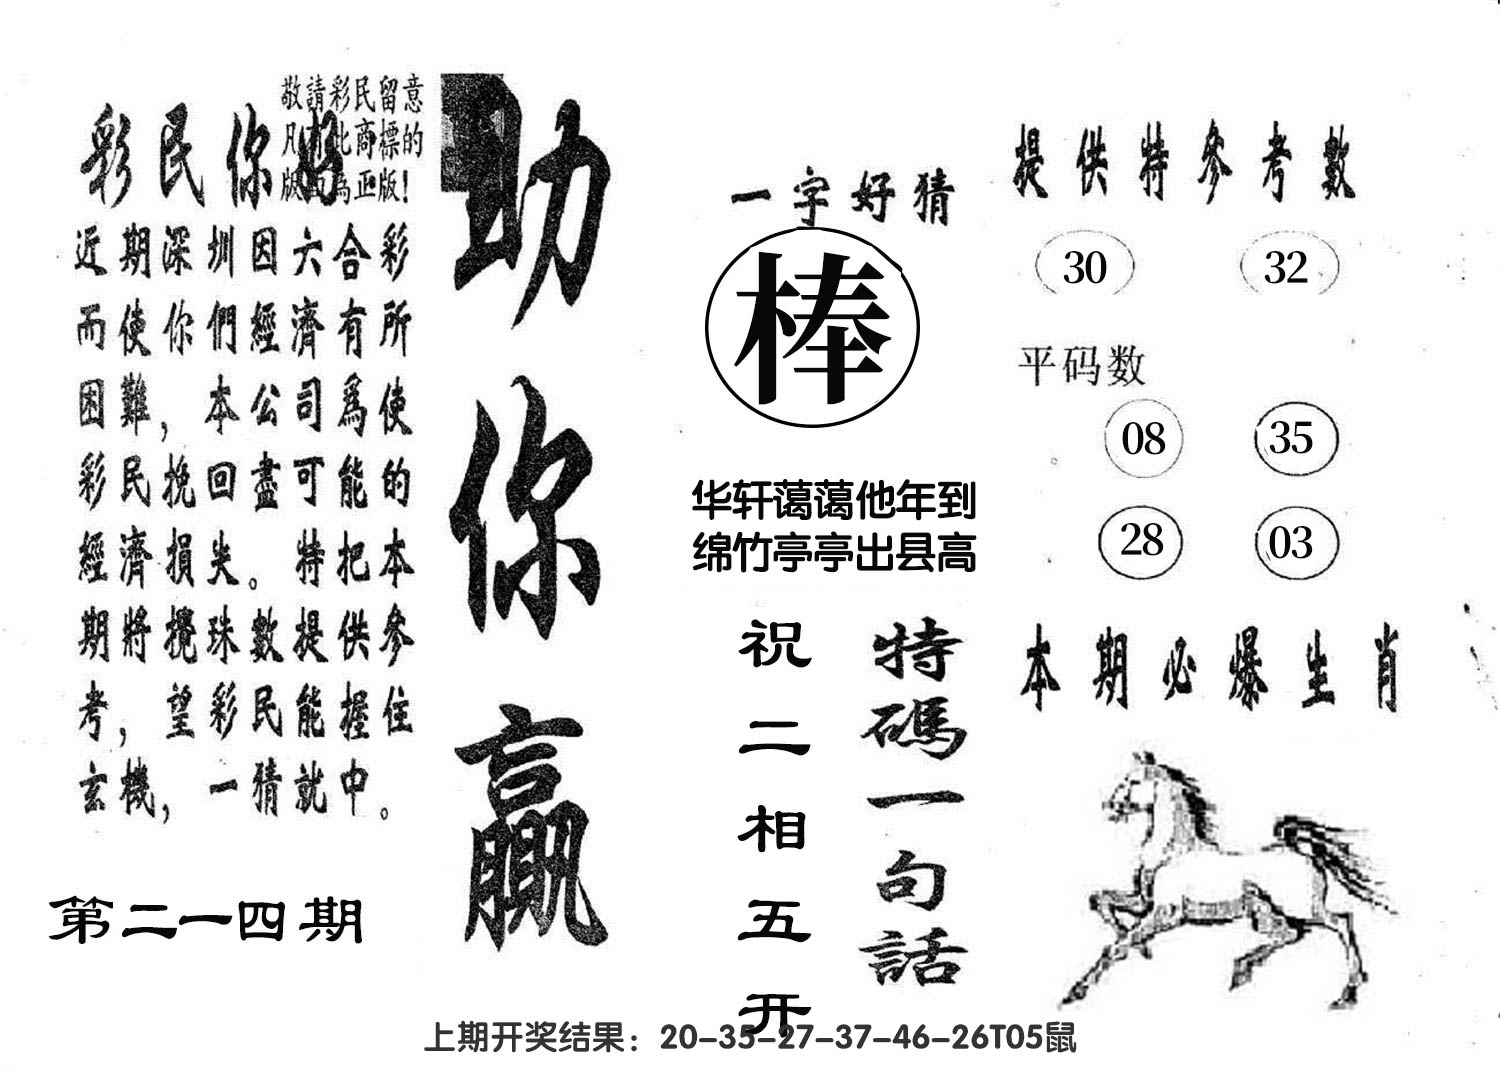 敬請彩民留意
凡有此商標的
版面為正版!
彩民你好
近期深圳因六合彩
而使你們經濟有所
困難，本公司爲使
彩民挽回盡可能的
經濟損失。特把本
期將攪珠數提供參
考，望彩民能握住
玄機，一猜就中。
第二一四期
助你贏
一字好猜
棒
华轩蔼蔼他年到
绵竹亭亭出县高
特碼一句話
祝二相五开
提供特參考數
30 32
平码数
08 35
28 03
本期必爆生肖
上期开奖结果：20-35-27-37-46-26T05鼠